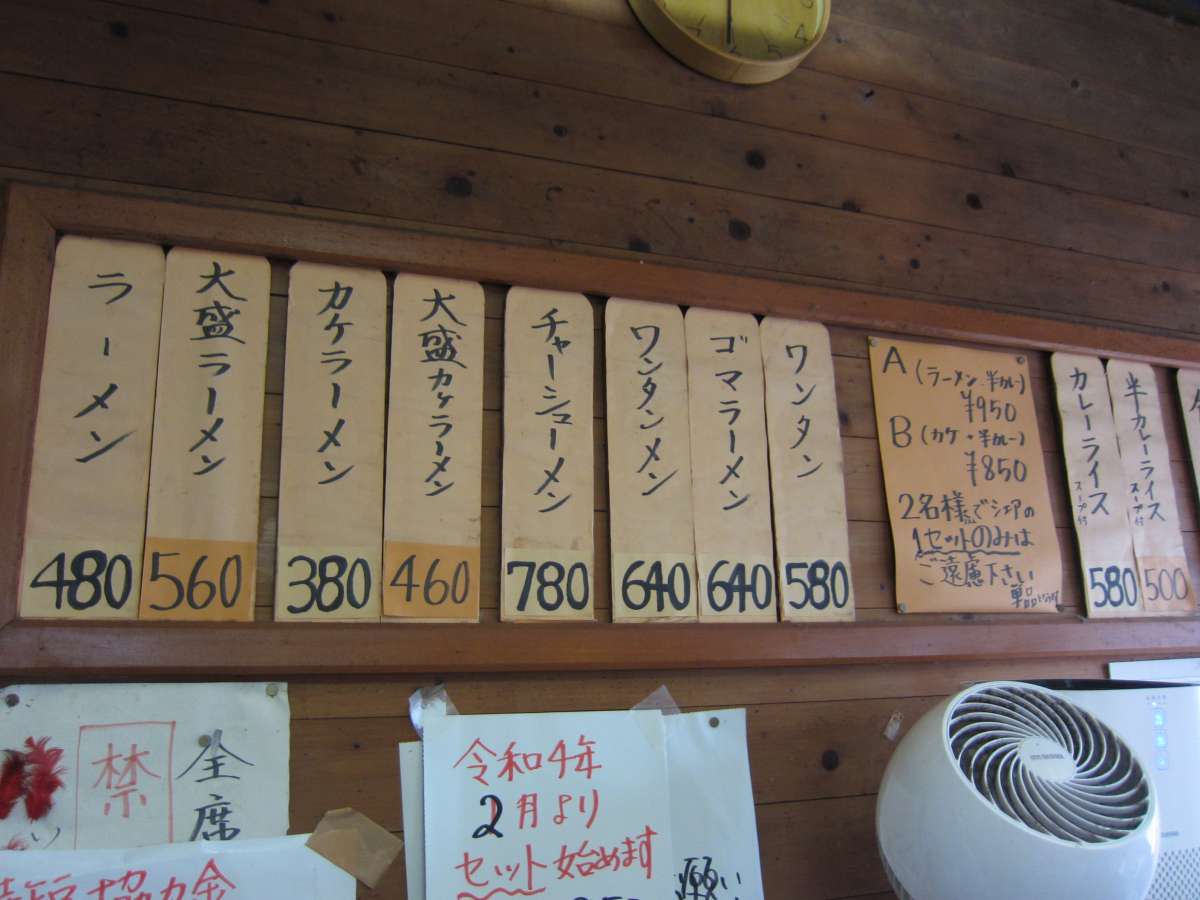 ラーメン
480
大盛ラーメン
560
カケラーメン
380
大盛カケラーメン
460
チャーシューメン
780
ワンタンメン
640
ゴマラーメン
640
ワンタン
580
A(ラーメン・半カレー)
¥950
B(カケ・半カレー)
¥850
2名様でシェアの
1セットのみは
ご遠慮下さい
カレーライス
スープ付
580
半カレーライス
スープ付
500
全席
禁
協力金
令和4年
2月より
セット始めます
願い